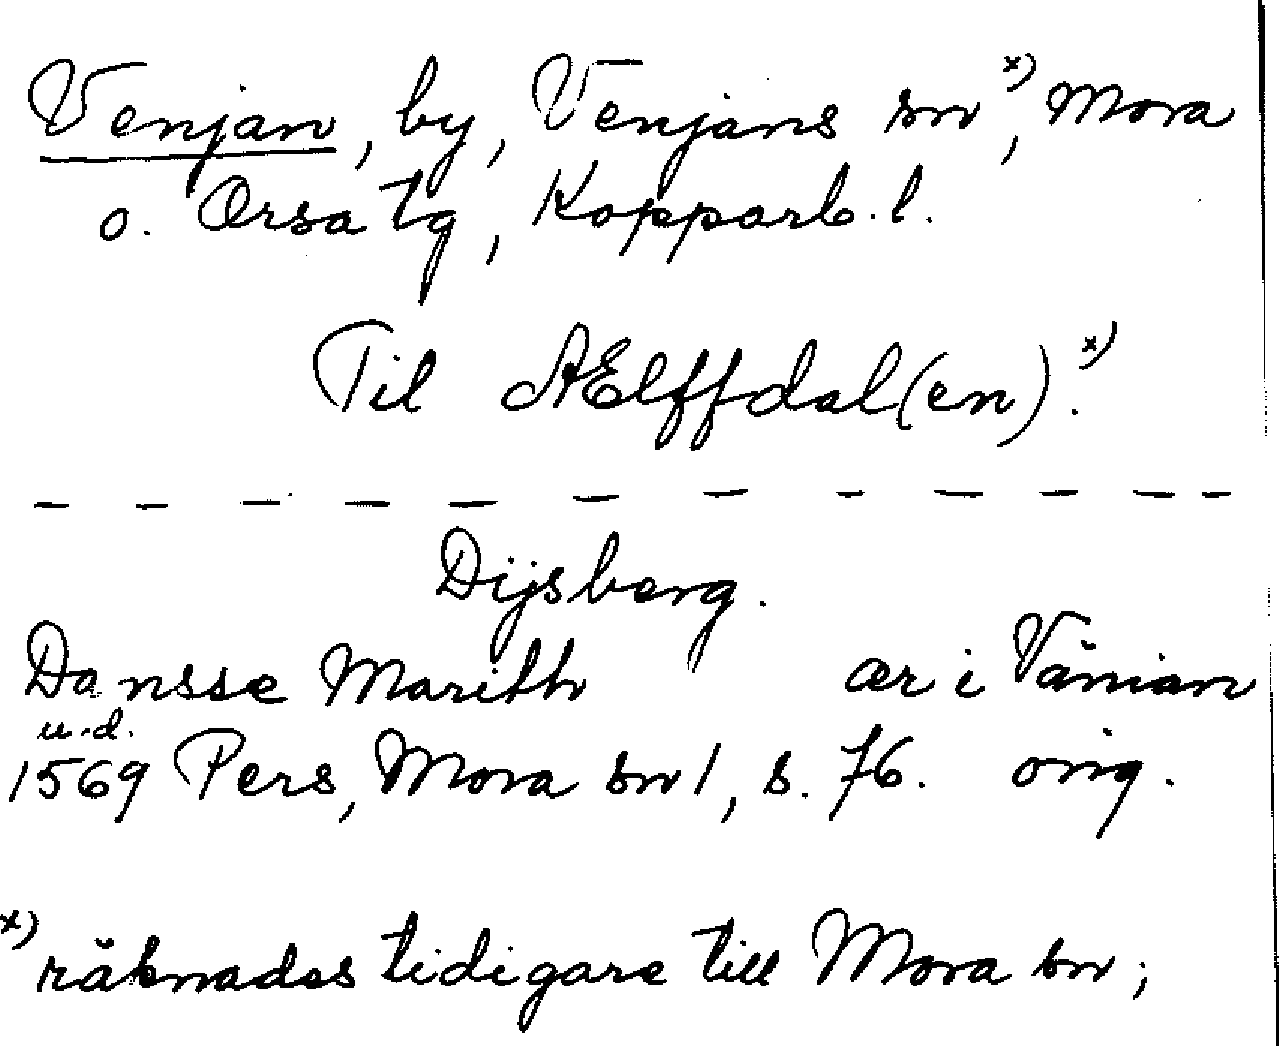 Venjan, by, Venjans sn x), Mora
o. Orsa tg, Kopparb.l.
Til AElffdal(en). x)
— — — — — — — — — — — —
Dijsberg.
Dansse Marith ær i Vänian
u.d.
1569 Pers, Mora sn 1, s. 76. orig.
x) räknades tidigare till Mora sn;